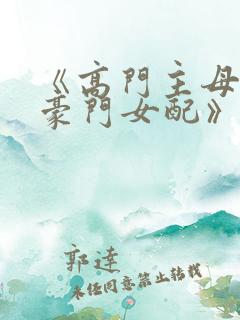 《高門主母
豪門女配》
郭達
未经同意禁止转载